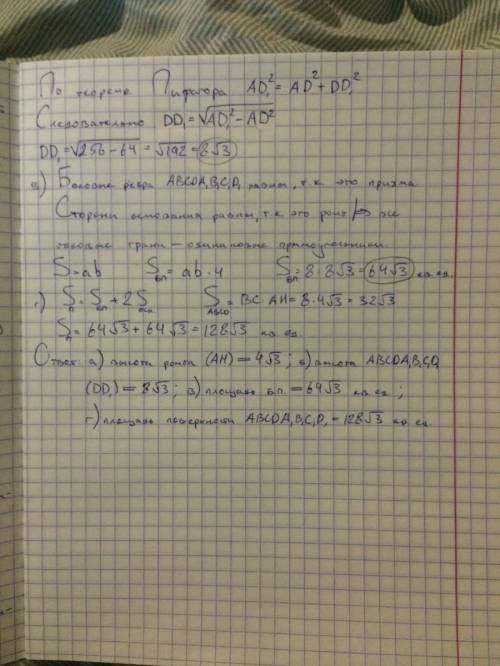 По теореме Пифагора AD₁² = AD² + DD₁²
Следовательно DD₁ = √AD₁² − AD²
DD₁ = √256 − 64 = √192 = 8√3
в) Боковые ребра ABCDA₁B₁C₁D₁ равны, т.к. это призма
Стороны основания равны, т.к это ромб все
боковые грани – одинаковые прямоугольники.
S = ab Sбп = ab · 4 Sбп = 8 · 8√3 = 64√3 кв. ед.
г) Sп = Sбп + 2Sосн SABCD = BC · AH = 8 · 4√3 = 32√3
Sп = 64√3 + 64√3 = 128√3 кв ед.
Ответ: а) высота ромба (AH) = 4√3 ; б) высота ABCDA₁B₁C₁D₁
(DD₁) = 8√3 ; в) площадь б.п. = 64√3 кв ед ;
г) площадь поверхности ABCDA₁B₁C₁D₁ = 128√3 кв ед.